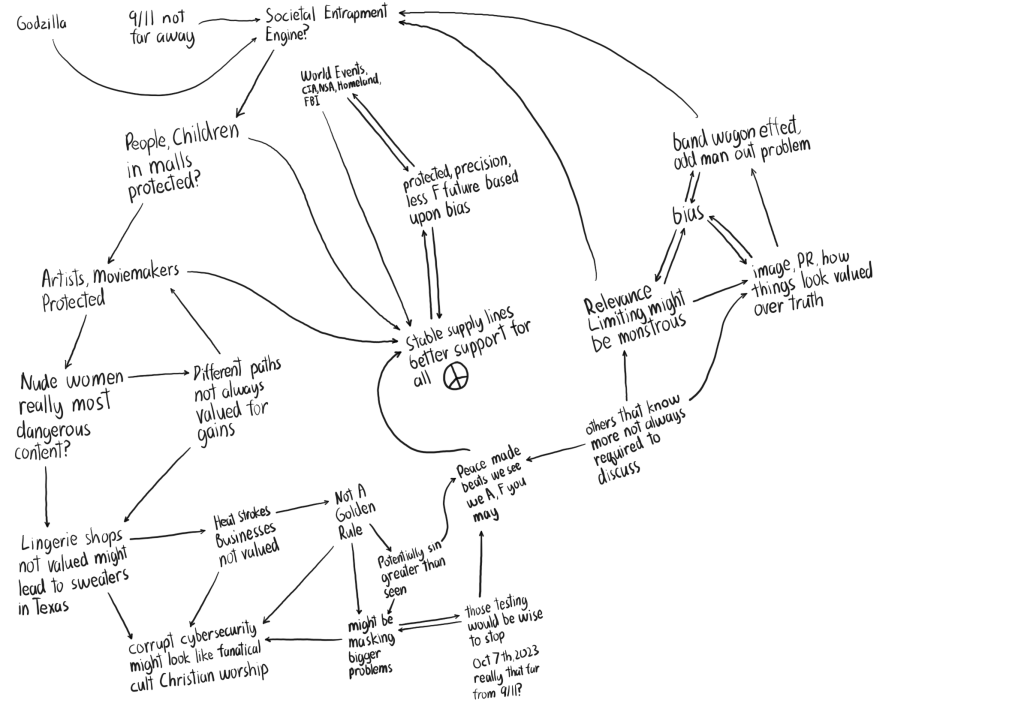 Godzilla
9/11 not
far away
Societal Entrapment
Engine?
World Events,
CIA,NSA,Homeland,
FBI
People, Children
in malls
protected?
band wagon effect,
odd man out problem
protected, precision,
less F future based
upon bias
bias
Artists, Moviemakers
Protected
image, PR, how
things look valued
over truth
Relevance
Limiting might
be monstrous
Stable supply lines
better support for
all
Nude women
really most
dangerous
content?
Different paths
not always
valued for
gains
others that know
more not always
required to
discuss
Peace made
beats we see
we A, F you
may
Not A
Golden
Rule
Heat strokes
Businesses
not valued
Lingerie shops
not valued might
lead to sweaters
in Texas
Potentially sin
greater than
seen
those testing
would be wise
to stop
Oct 7th, 2023
really that far
from 9/11?
might be
masking
bigger
problems
corrupt cybersecurity
might look like fanatical
cult Christian worship